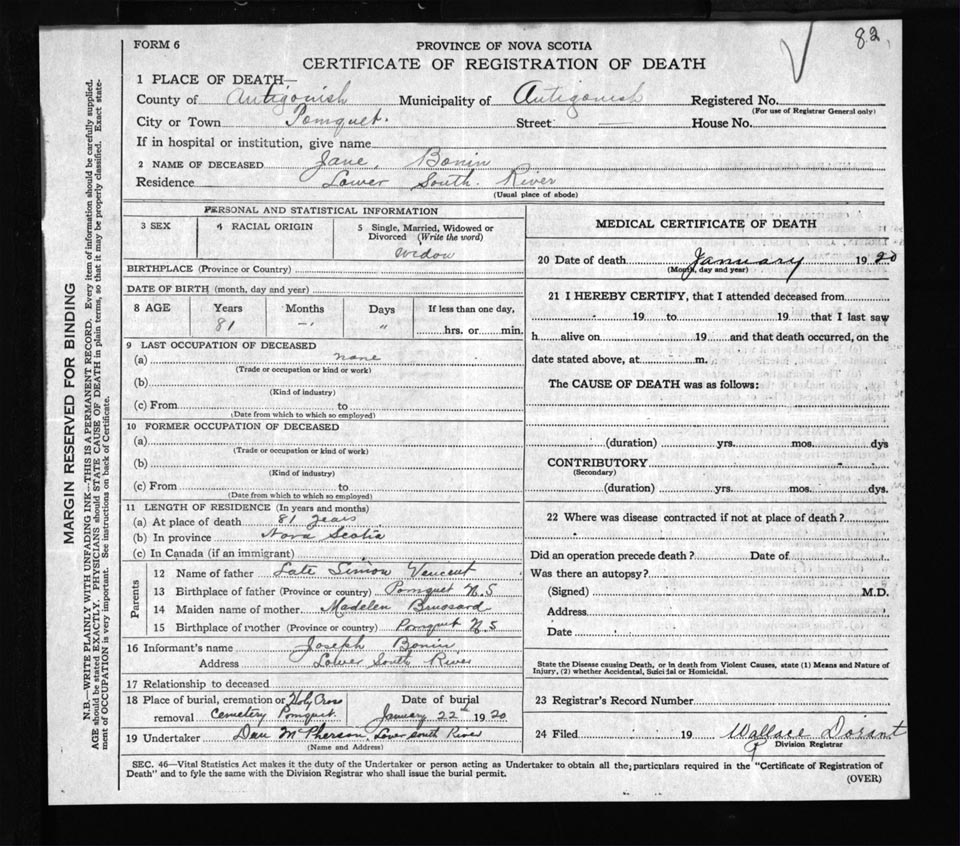 82
FORM 6
PROVINCE OF NOVA SCOTIA
CERTIFICATE OF REGISTRATION OF DEATH
1 PLACE OF DEATH—
County of Antigonish Municipality of Antigonish Registered No.
(For use of Registrar General only)
City or Town Pomquet. Street House No.
If in hospital or institution, give name
2 NAME OF DECEASED Jane Bonin
Residence Lower South River
(Usual place of abode)
MARGIN RESERVED FOR BINDING
N.B.—WRITE PLAINLY WITH UNFADING INK—THIS IS A PERMANENT RECORD. Every item of information should be carefully supplied.
AGE should be stated EXACTLY. PHYSICIANS should STATE CAUSE OF DEATH in plain terms, so that it may be properly classified. Exact state-
ment of OCCUPATION is very important. See instructions on back of Certificate.
PERSONAL AND STATISTICAL INFORMATION
3 SEX
4 RACIAL ORIGIN
5 Single, Married, Widowed or
Divorced (Write the word)
widow
BIRTHPLACE (Province or Country)
DATE OF BIRTH (month, day and year)
8 AGE Years Months Days If less than one day,
81 – " hrs. or min.
9 LAST OCCUPATION OF DECEASED
(a) none
(Trade or occupation or kind or work)
(b)
(Kind of industry)
(c) From to
(Date from which to which so employed)
10 FORMER OCCUPATION OF DECEASED
(a)
(Trade or occupation or kind of work)
(b)
(Kind of industry)
(c) From to
(Date from which to which so employed)
11 LENGTH OF RESIDENCE (In years and months)
(a) At place of death 81 years
(b) In province Nova Scotia
(c) In Canada (if an immigrant)
Parents
12 Name of father Late Simon Vencent
13 Birthplace of father (Province or country) Pomquet N.S
14 Maiden name of mother Madelen Brussard
15 Birthplace of mother (Province or country) Pomquet N.S
16 Informant's name Joseph Bonin
Address Lower South River
17 Relationship to deceased
18 Place of burial, cremation or Holy Cross
removal Cemetery Pomquet
Date of burial
January 22 1920
19 Undertaker Dan McPherson, Lower South River
(Name and Address)
MEDICAL CERTIFICATE OF DEATH
20 Date of death January 1920
(Month, day and year)
21 I HEREBY CERTIFY, that I attended deceased from
19 to 19 that I last saw
h alive on 19 and that death occurred, on the
date stated above, at m.
The CAUSE OF DEATH was as follows:
(duration) yrs. mos. dys
CONTRIBUTORY
(Secondary)
(duration) yrs. mos. dys.
22 Where was disease contracted if not at place of death?
Did an operation precede death? Date of
Was there an autopsy?
(Signed) M.D.
Address
Date
State the Disease causing Death, or in death from Violent Causes, state (1) Means and Nature of
Injury, (2) whether Accidental, Suicidal or Homicidal.
23 Registrar's Record Number
24 Filed 19 Wallace Dorant
Division Registrar
SEC. 46—Vital Statistics Act makes it the duty of the Undertaker or person acting as Undertaker to obtain all the particulars required in the "Certificate of Registration of
Death" and to fyle the same with the Division Registrar who shall issue the burial permit.
(OVER)